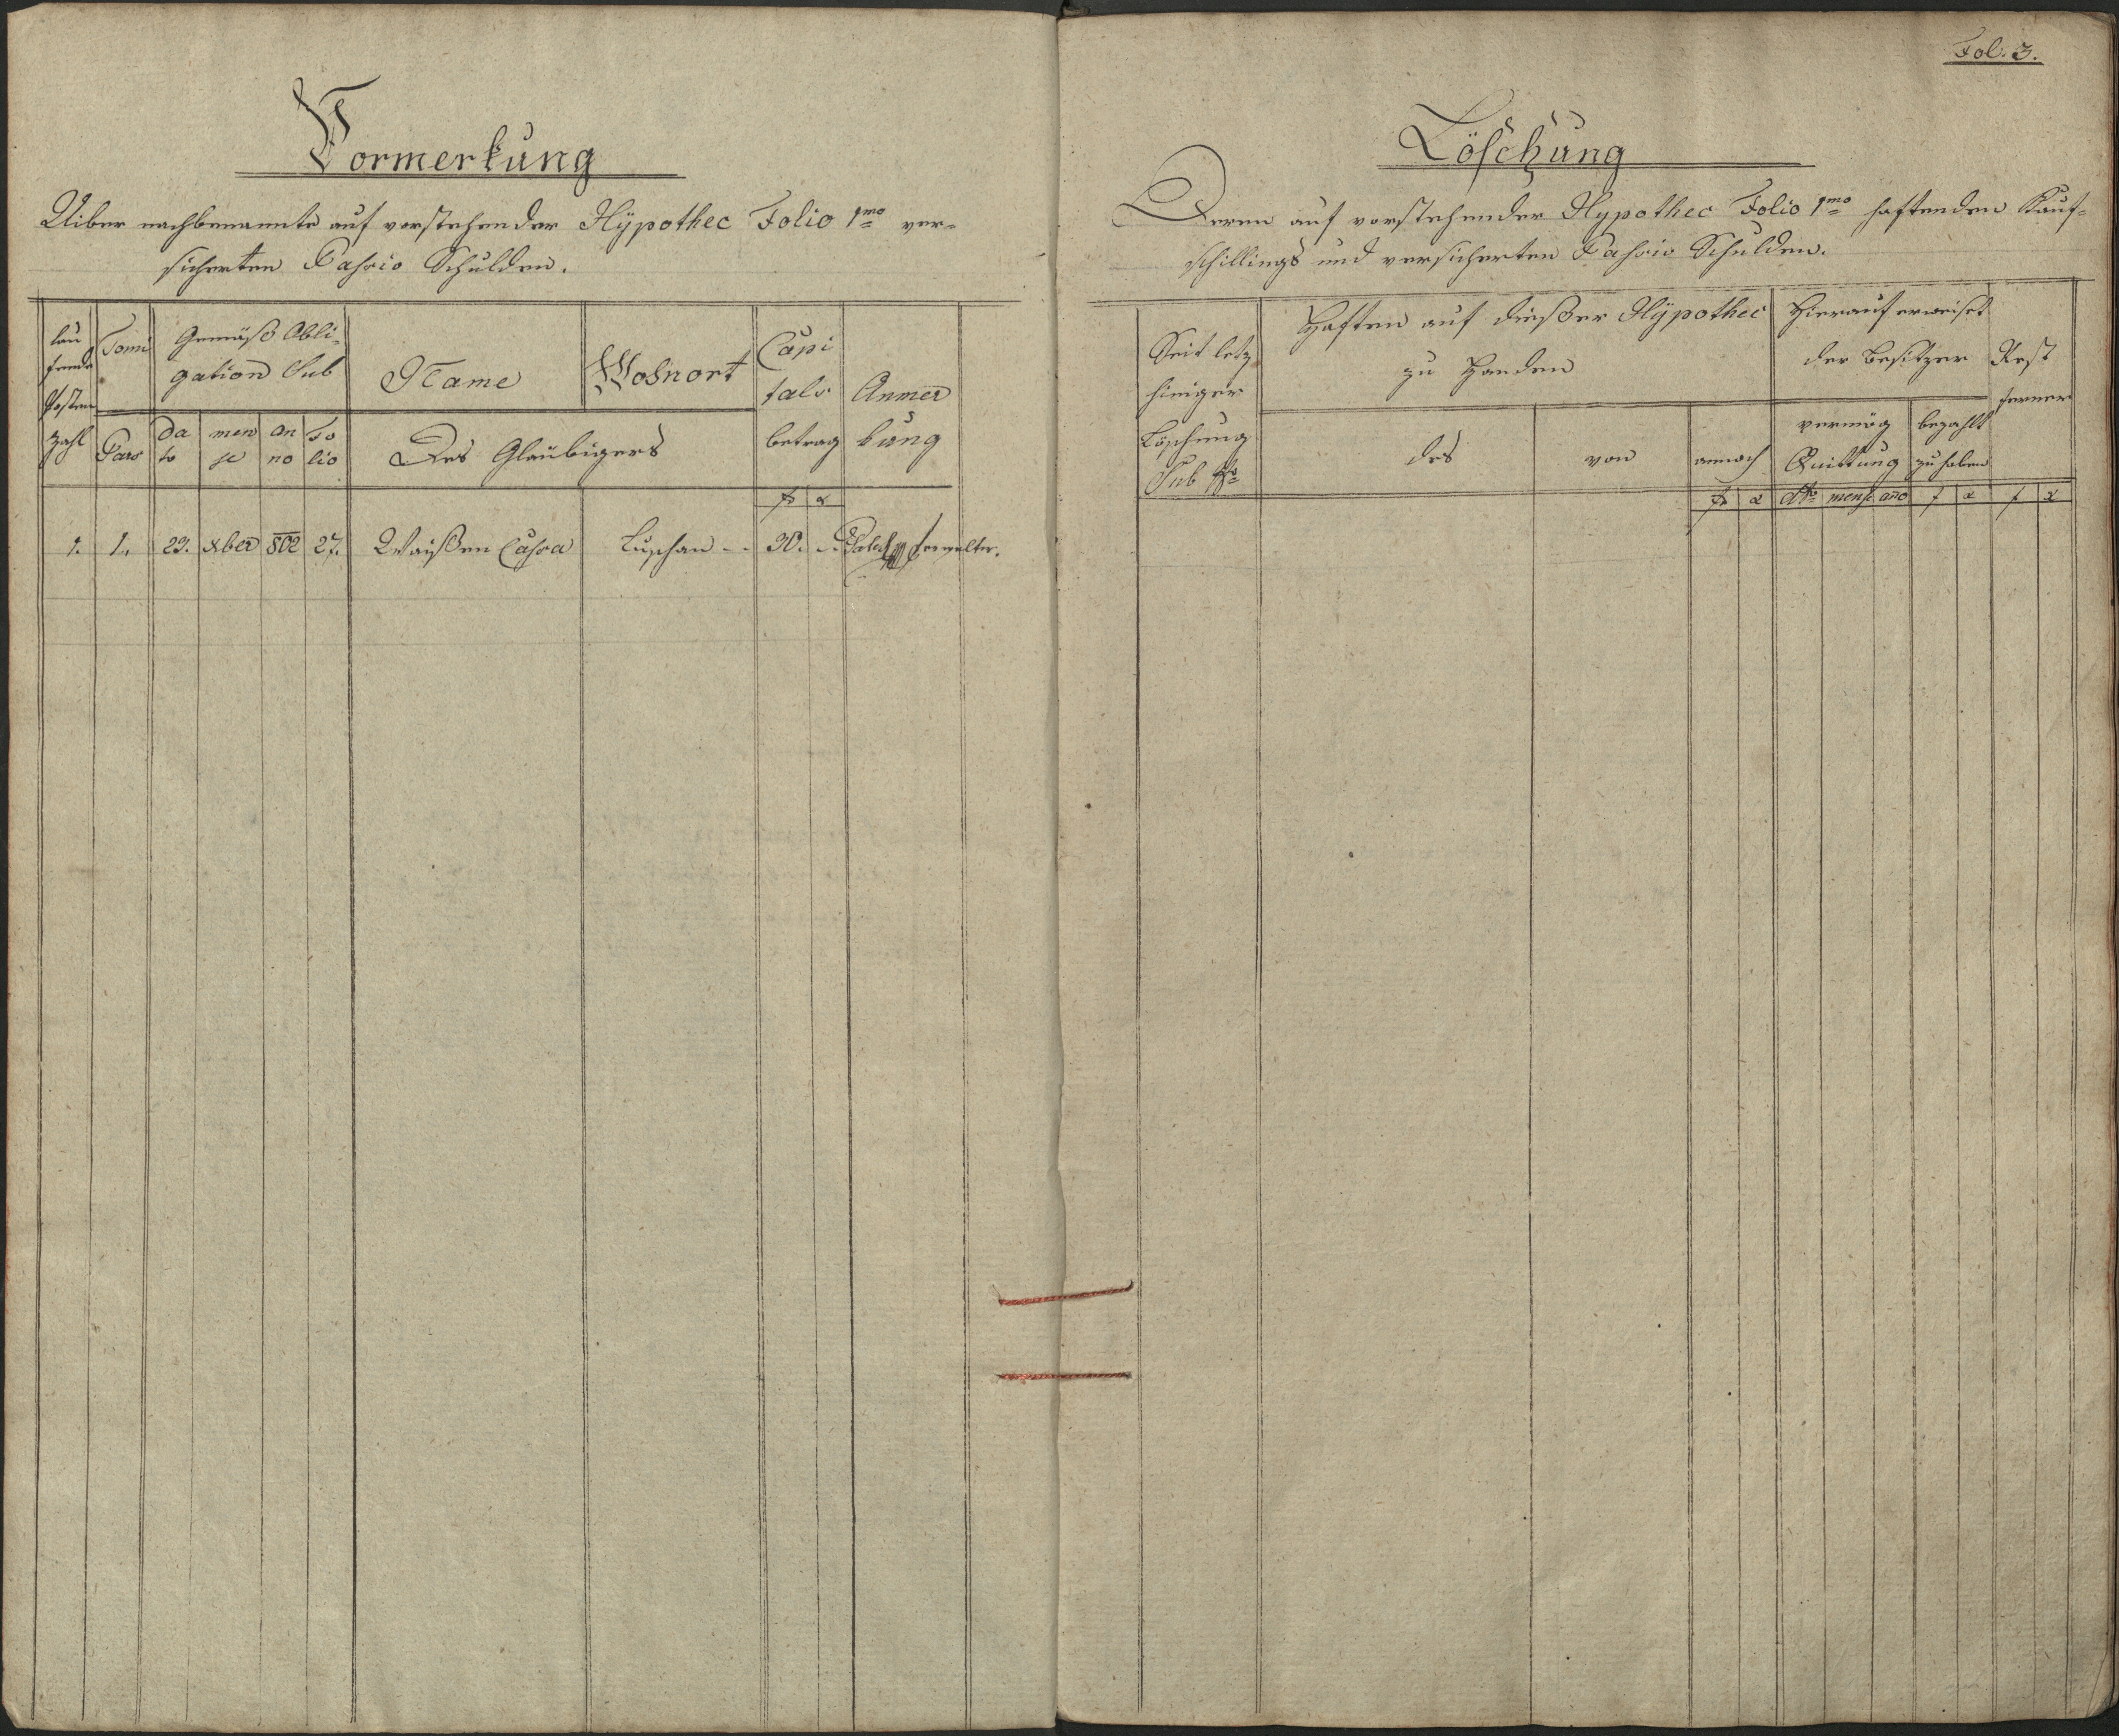 Vormerkung
Uiber nachbenannte auf vorstehender Hÿpothec Folio 1mo ver-
sicherten Passio Schulden.
lau
fende
Posten
Zahl
Tomi
Pars
Gemäß Obli-
gation Sub
da
to
men
se
an
no
Fo
lio
Name
Wohnort
Des Glaubigers
Capi
tals
betrag
Anmer
kung
f x
1. 1. 29. Xber 802 27. Waißen Cassa Luschan 30. Verwalter.
Fol: 3.
Löschung
Deren auf vorstehender Hypothec Folio 1mo haftenden Kauf-
schillings und versicherten Passio Schulden.
Seit letz
hiniger
Löschung
Sub
Haften auf dießer Hÿpothec
zu Handen
des
von
annoch
Hierauf erweiset
der Besitzer
vermög
Quittung
bezahlt
zu haben
Rest
ferner
f x dto mense año f x f x